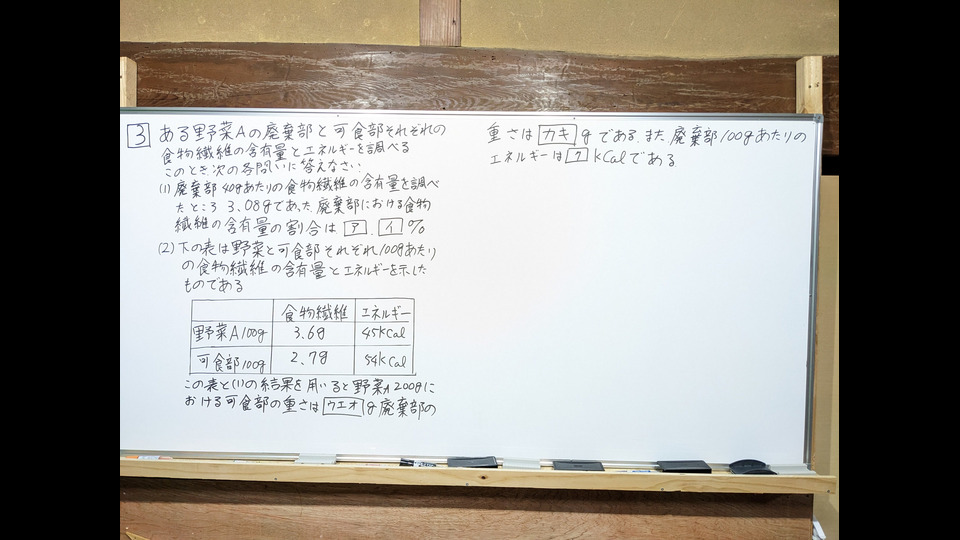 3 ある野菜Aの廃棄部と可食部それぞれの
食物繊維の含有量とエネルギーを調べる
このとき次の各問いに答えなさい
(1) 廃棄部40gあたりの食物繊維の含有量を調べ
たところ3.08gであった 廃棄部における食物
繊維の含有量の割合は ア . イ %
(2) 下の表は野菜と可食部それぞれ100gあたり
の食物繊維の含有量とエネルギーを示した
ものである
食物繊維 エネルギー
野菜A100g 3.6g 45kcal
可食部100g 2.7g 54kcal
この表と(1)の結果を用いると野菜A200gに
おける可食部の重さは ウエオ g 廃棄部の
重さは カキ gである.また 廃棄部100gあたりの
エネルギーは ク kcalである